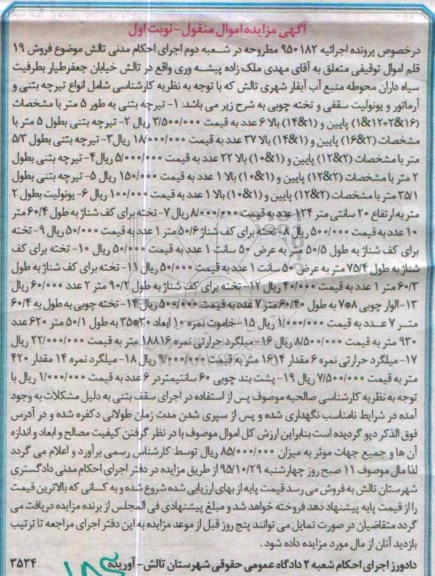 آگهی مزایده اموال منقول - نوبت اول
درخصوص پرونده اجرائیه ۹۵۰۱۸۲ مطروحه در شعبه دوم اجرای احکام مدنی تالش موضوع فروش ۱۹
قلم اموال توقیفی متعلق به آقای مهدی ملک زاده پیشه وری واقع در تالش خیابان جعفرطیار بطرفیت
سیاه داران محوطه منبع آب آبفار شهری تالش که با توجه به نظریه کارشناسی شامل انواع تیرچه بتنی و
آرماتور و یونولیت سقفی و تخته چوبی به شرح زیر می باشد: ۱- تیرچه بتنی به طور ۵ متر با مشخصات
پایین و (1&14) بالا ۶ عدد به قیمت ۳/۵۰۰/۰۰۰ ریال ۲- تیرچه بتنی بطول ۵ متر با
مشخصات (2&16) پایین و (1&14) بالا ۳۷ عدد به قیمت ۱۸/۰۰۰/۰۰۰ ریال ۳- تیرچه بتنی بطول ۵/۳
متر با مشخصات (2&12) پایین و (1&10) بالا ۲۲ عدد به قیمت ۵/۰۰۰/۰۰۰ ریال ۴- تیرچه بتنی بطول
۲ متر با مشخصات (2&12) پایین و (1&10) بالا ۱ عدد به قیمت ۱۵۰/۰۰۰ ریال ۵- تیرچه بتنی بطول
۳۵/۱ متر با مشخصات (2&12) پایین و (1&10) بالا ۱ عدد به قیمت ۱۰۰/۰۰۰ ریال ۶- یونولیت بطول ۲
متر به ارتفاع ۲۰ سانتی متر ۱۲۴ عدد به قیمت ۸/۰۰۰/۰۰۰ ریال ۷- تخته برای کف شناژ به طول ۶۰/۴ متر
۱۰ عدد به قیمت ۵۰۰/۰۰۰ ریال ۸- تخته برای کف شناژ ۵۰/۶ متر ۱ عدد به قیمت ۵۰/۰۰۰ ریال ۹- تخته
برای کف شناژ به طول ۵۰/۵ متر به عرض ۵۰ سانت ۱ عدد به قیمت ۵۰/۰۰۰ ریال ۱۰- تخته برای کف
شناژ به طول ۷۵/۴ متر به عرض ۵۰ سانت ۱ عدد به قیمت ۵۰/۰۰۰ ریال ۱۱- تخته برای کف شناژ به طول
۶۰/۳ متر ۱ عدد به قیمت ۴۰/۰۰۰ ریال ۱۲- تخته برای کف شناژ به طول ۹۰/۲ متر ۲ عدد ۶۰/۰۰۰ ریال
۱۳- الوار چوبی ۸*۷ به طول ۶۰/۴۰ متر ۷ عدد به قیمت ۵۰۰/۰۰۰ ریال ۱۴- تخته چوبی به طول به ۶۰/۴
متر ۷ عدد به قیمت ۱/۰۰۰/۰۰۰ ریال ۱۵- خاموت نمره ۱۰ ابعاد ۲۰*۳۵ به طول ۵۰/۱ متر ۶۲۰ عدد
۹۳۰ متر به قیمت ۸/۵۰۰/۰۰۰ ریال ۱۶- میلگرد حرارتی نمره 16&18 متر به قیمت ۲۲/۰۰۰/۰۰۰ ریال
۱۷- میلگرد حرارتی نمره ۶ مقدار ۱۶۱۴ متر به قیمت ۹/۰۰۰/۰۰۰ ریال ۱۸- میلگرد نمره ۱۴ مقدار ۴۲۰
متر به قیمت ۷/۵۰۰/۰۰۰ ریال ۱۹- پشت بند چوبی ۶۰ سانتیمتر در ۶ عدد به قیمت ۱/۰۰۰/۰۰۰ ریال با
توجه به نظریه کارشناسی صالحیه موصوف پس از استفاده در اجرای سقف بتنی به دلیل مشکلات به وجود
آمده در شرایط نامناسب نگهداری شده و پس از سپری شدن مدت زمان طولانی دکفره شده و در آدرس
فوق الذکر دپو گردیده است بنابراین ارزش کل اموال موصوف با در نظر گرفتن کیفیت مصالح و ابعاد و اندازه
آن ها و جمیع جهات موثر به میزان ۸۵/۰۰۰/۰۰۰ ریال توسط کارشناس رسمی برآورد و اعلام می گردد
لذا مال موصوف ۱۱ صبح روز چهارشنبه ۹۵/۱۰/۲۹ از طریق مزایده در دفتر اجرای احکام مدنی دادگستری
شهرستان تالش به فروش می رسد قیمت پایه از بهای ارزیابی شده شروع شده و به کسانی که بالاترین قیمت
را از قیمت پایه پیشنهاد دهد فروخته خواهد شد و مبلغ پیشنهادی فی المجلس از برنده مزایده دریافت می
گردد متقاضیان در صورت تمایل می توانند پنج روز قبل از موعد مزایده به این دفتر اجرای مراجعه تا ترتیب
بازدید آنان از مال مورد مزایده داده شود.
دادورز اجرای احکام شعبه ۲ دادگاه عمومی حقوقی شهرستان تالش - آوریده ۳۵۳۴